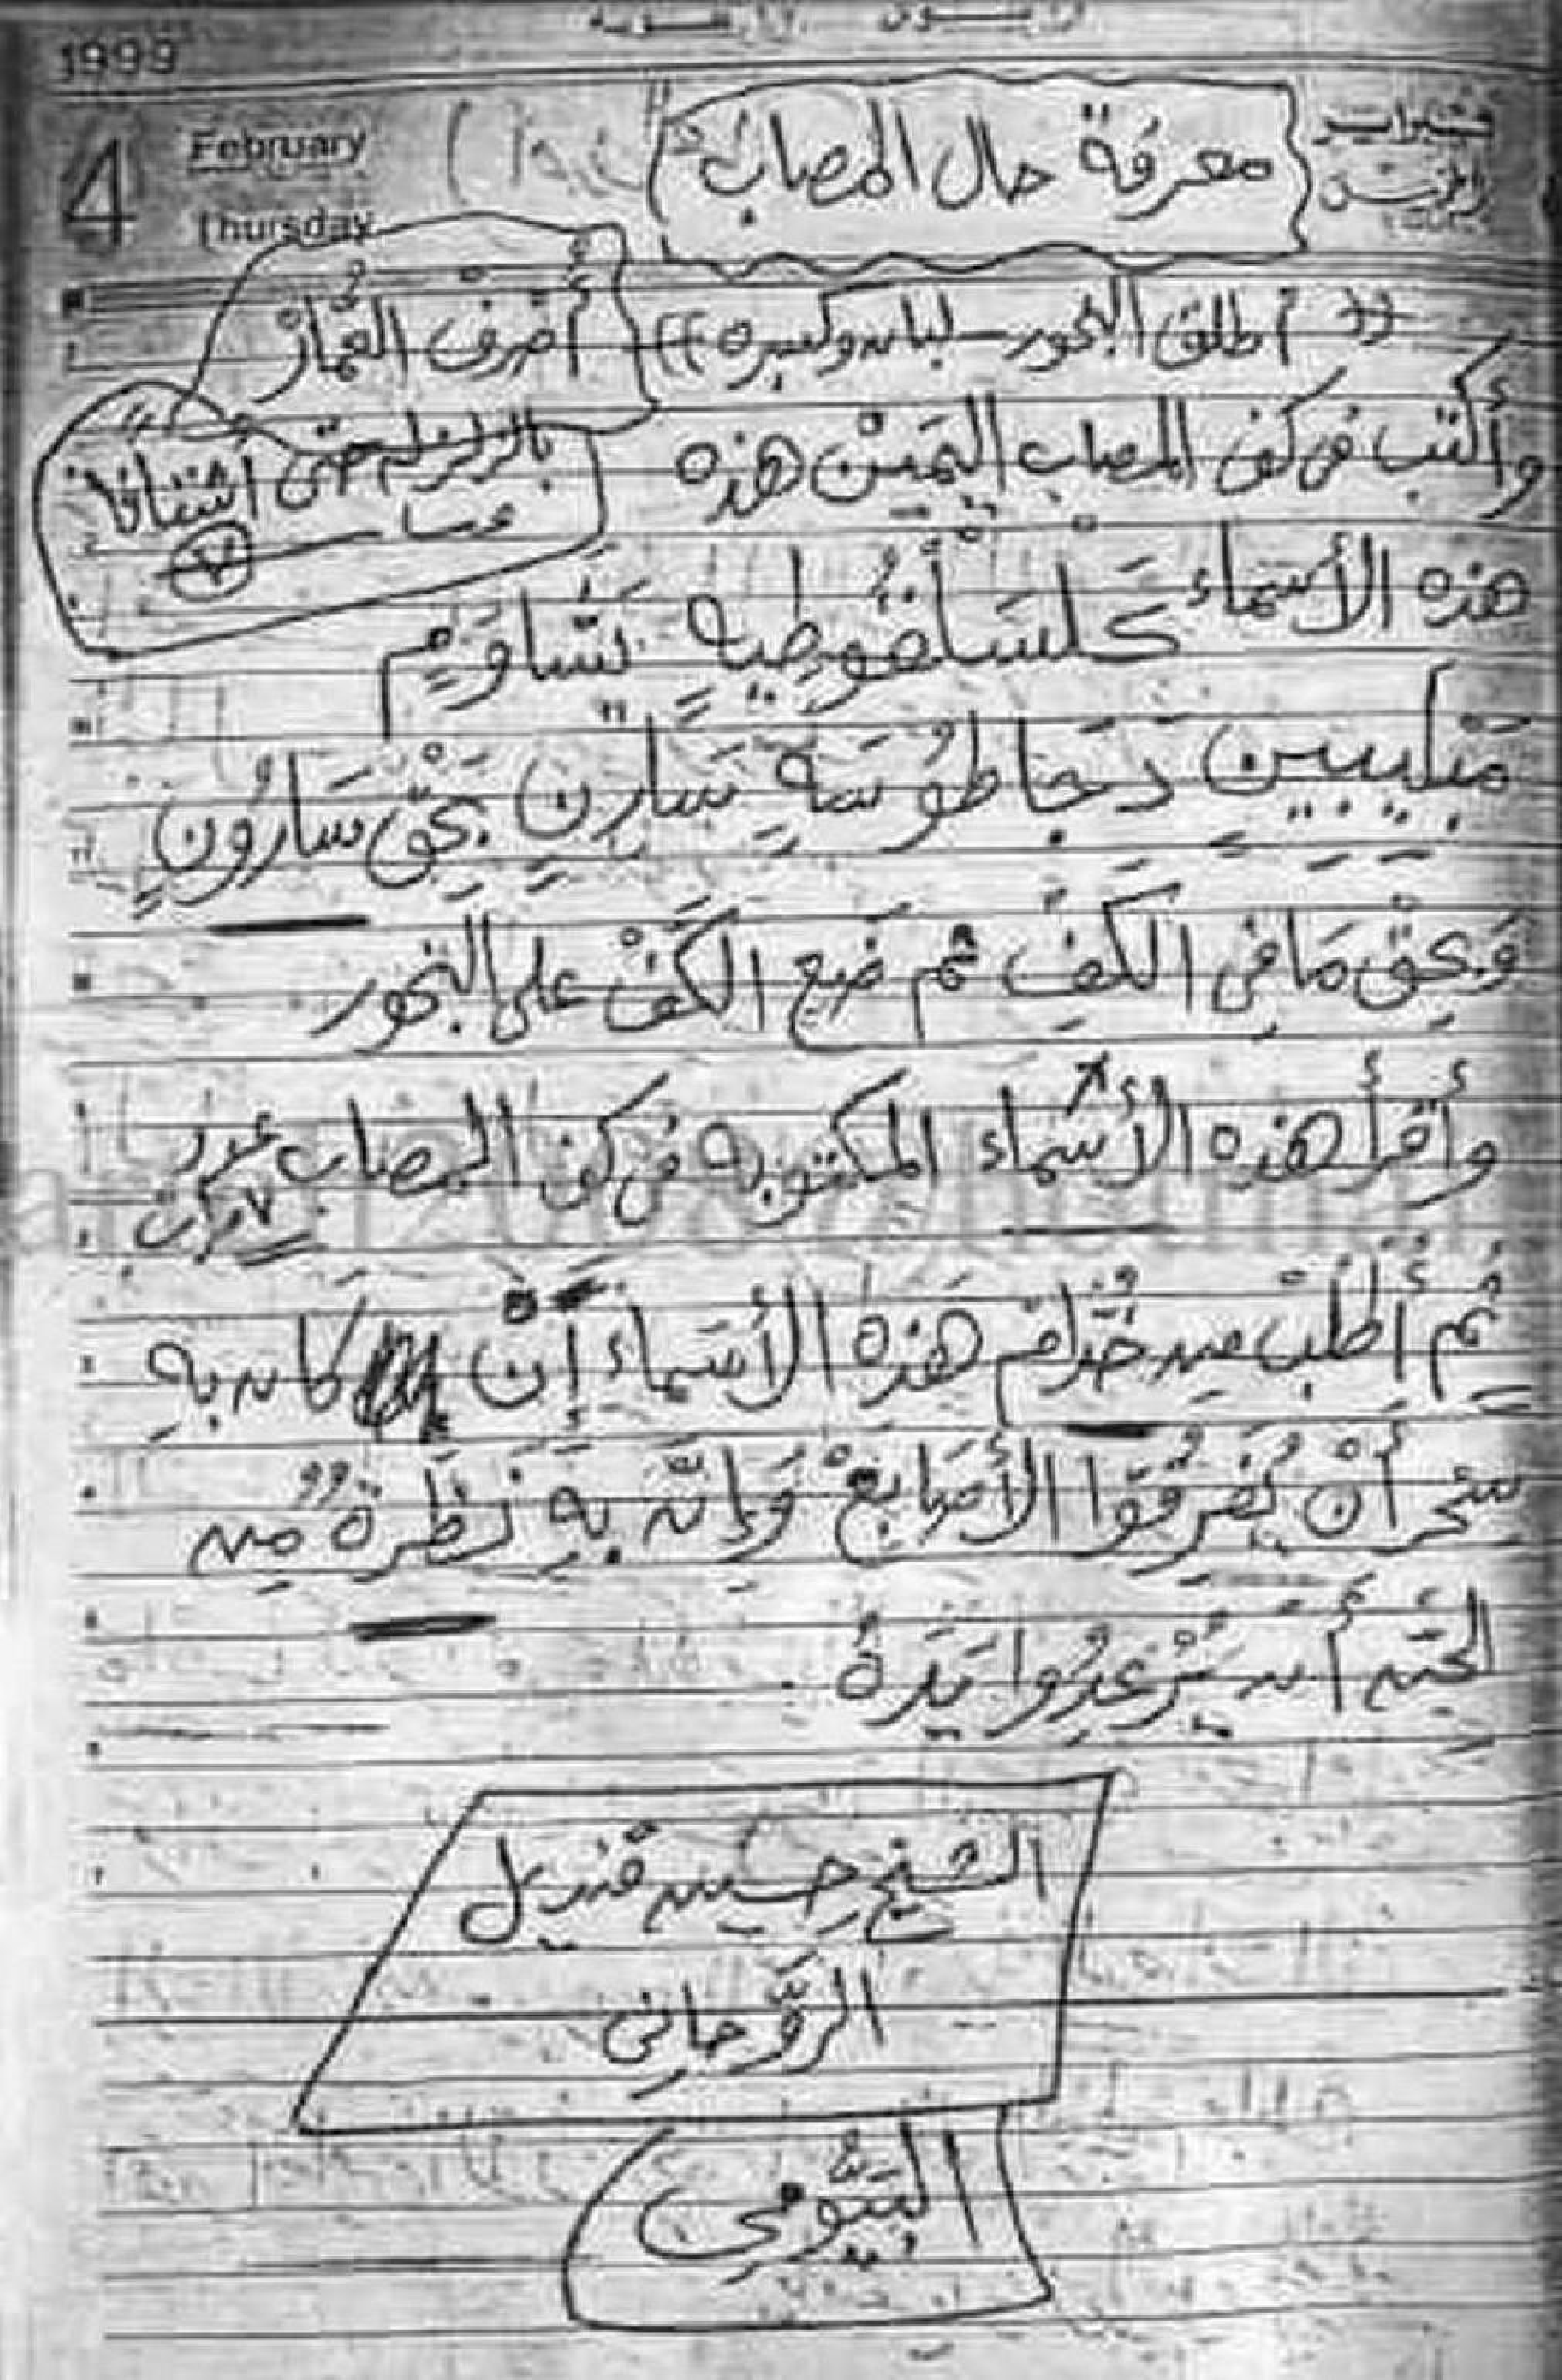 1999
4
February
Thursday
فبراير
الخميس
معرفة حال المصاب
(( أطلق البخور - لبان وكسبره ))
أصرف العُمار
بالزلزلة حتى اشتاتا
٧
وأكتب فى كف المصاب اليمين هذه
هذه الأسماء كلسَأضُوطيه تشاويم
دَجاطوُسَةٍ سَارنٍ بحَق سَارُونٍ
وَبحق مَا فى الكفِ ثم ضع الكف على البخور
وأقرأ هذه الأسماء المكتوبه فى كف المصاب عدد
٧ مرات
ثُم أُطلُب مِن خُدام هَذِه الأسَماء إن كان بهِ
سِحر أن يُفرِقُوا الأصَابع وَإن بهِ نَظرةٌ مِن
الجِن أن يُرْعِدُوا يَدَهُ
الشيخ حسين قنديل
الرَّوحانِى
البَيُّومِى